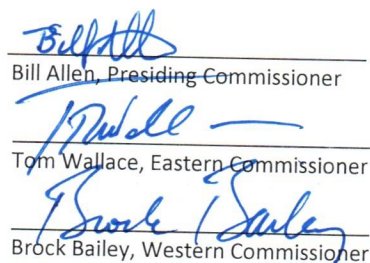 Bill Allen, Presiding Commissioner
Tom Wallace, Eastern Commissioner
Brock Bailey
Brock Bailey, Western Commissioner